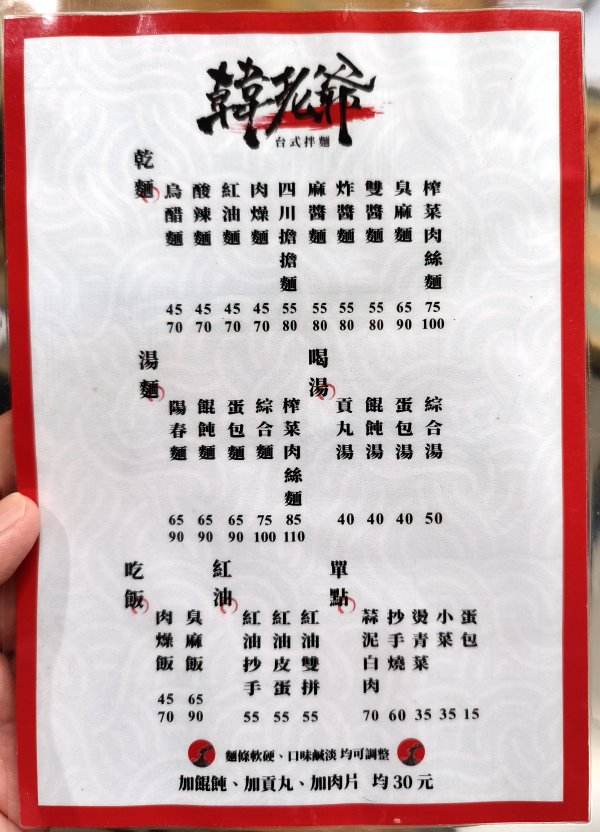 韓老爺
台式拌麵
乾麵
烏醋麵 45 70
酸辣麵 45 70
紅油麵 45 70
肉燥麵 45 70
四川擔擔麵 55 80
麻醬麵 55 80
炸醬麵 55 80
雙醬麵 55 80
臭麻麵 65 90
榨菜肉絲麵 75 100
湯麵
陽春麵 65 90
餛飩麵 65 90
蛋包麵 65 90
綜合麵 75 100
榨菜肉絲麵 85 110
喝湯
貢丸湯 40
餛飩湯 40
蛋包湯 40
綜合湯 50
吃飯
肉燥飯 45 70
臭麻飯 65 90
紅油
紅油抄手 55
紅油皮蛋 55
紅油雙拼 55
單點
蒜泥白肉 70
抄手燒 60
燙青菜 35
小菜 35
蛋包 15
麵條軟硬、口味鹹淡 均可調整
加餛飩、加貢丸、加肉片 均30元